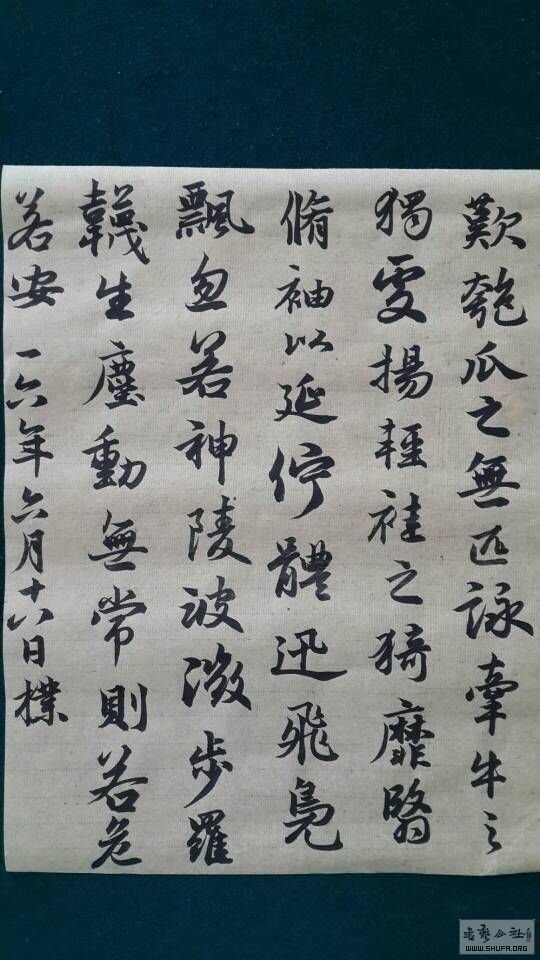 歎匏瓜之無匹詠牽牛之
獨處揚輕袿之猗靡翳
脩袖以延佇體迅飛鳧
飄忽若神陵波微步羅
韈生塵動無常則若危
若安 一六年六月十八日樸
書藝公社
WWW.SHUFA.ORG